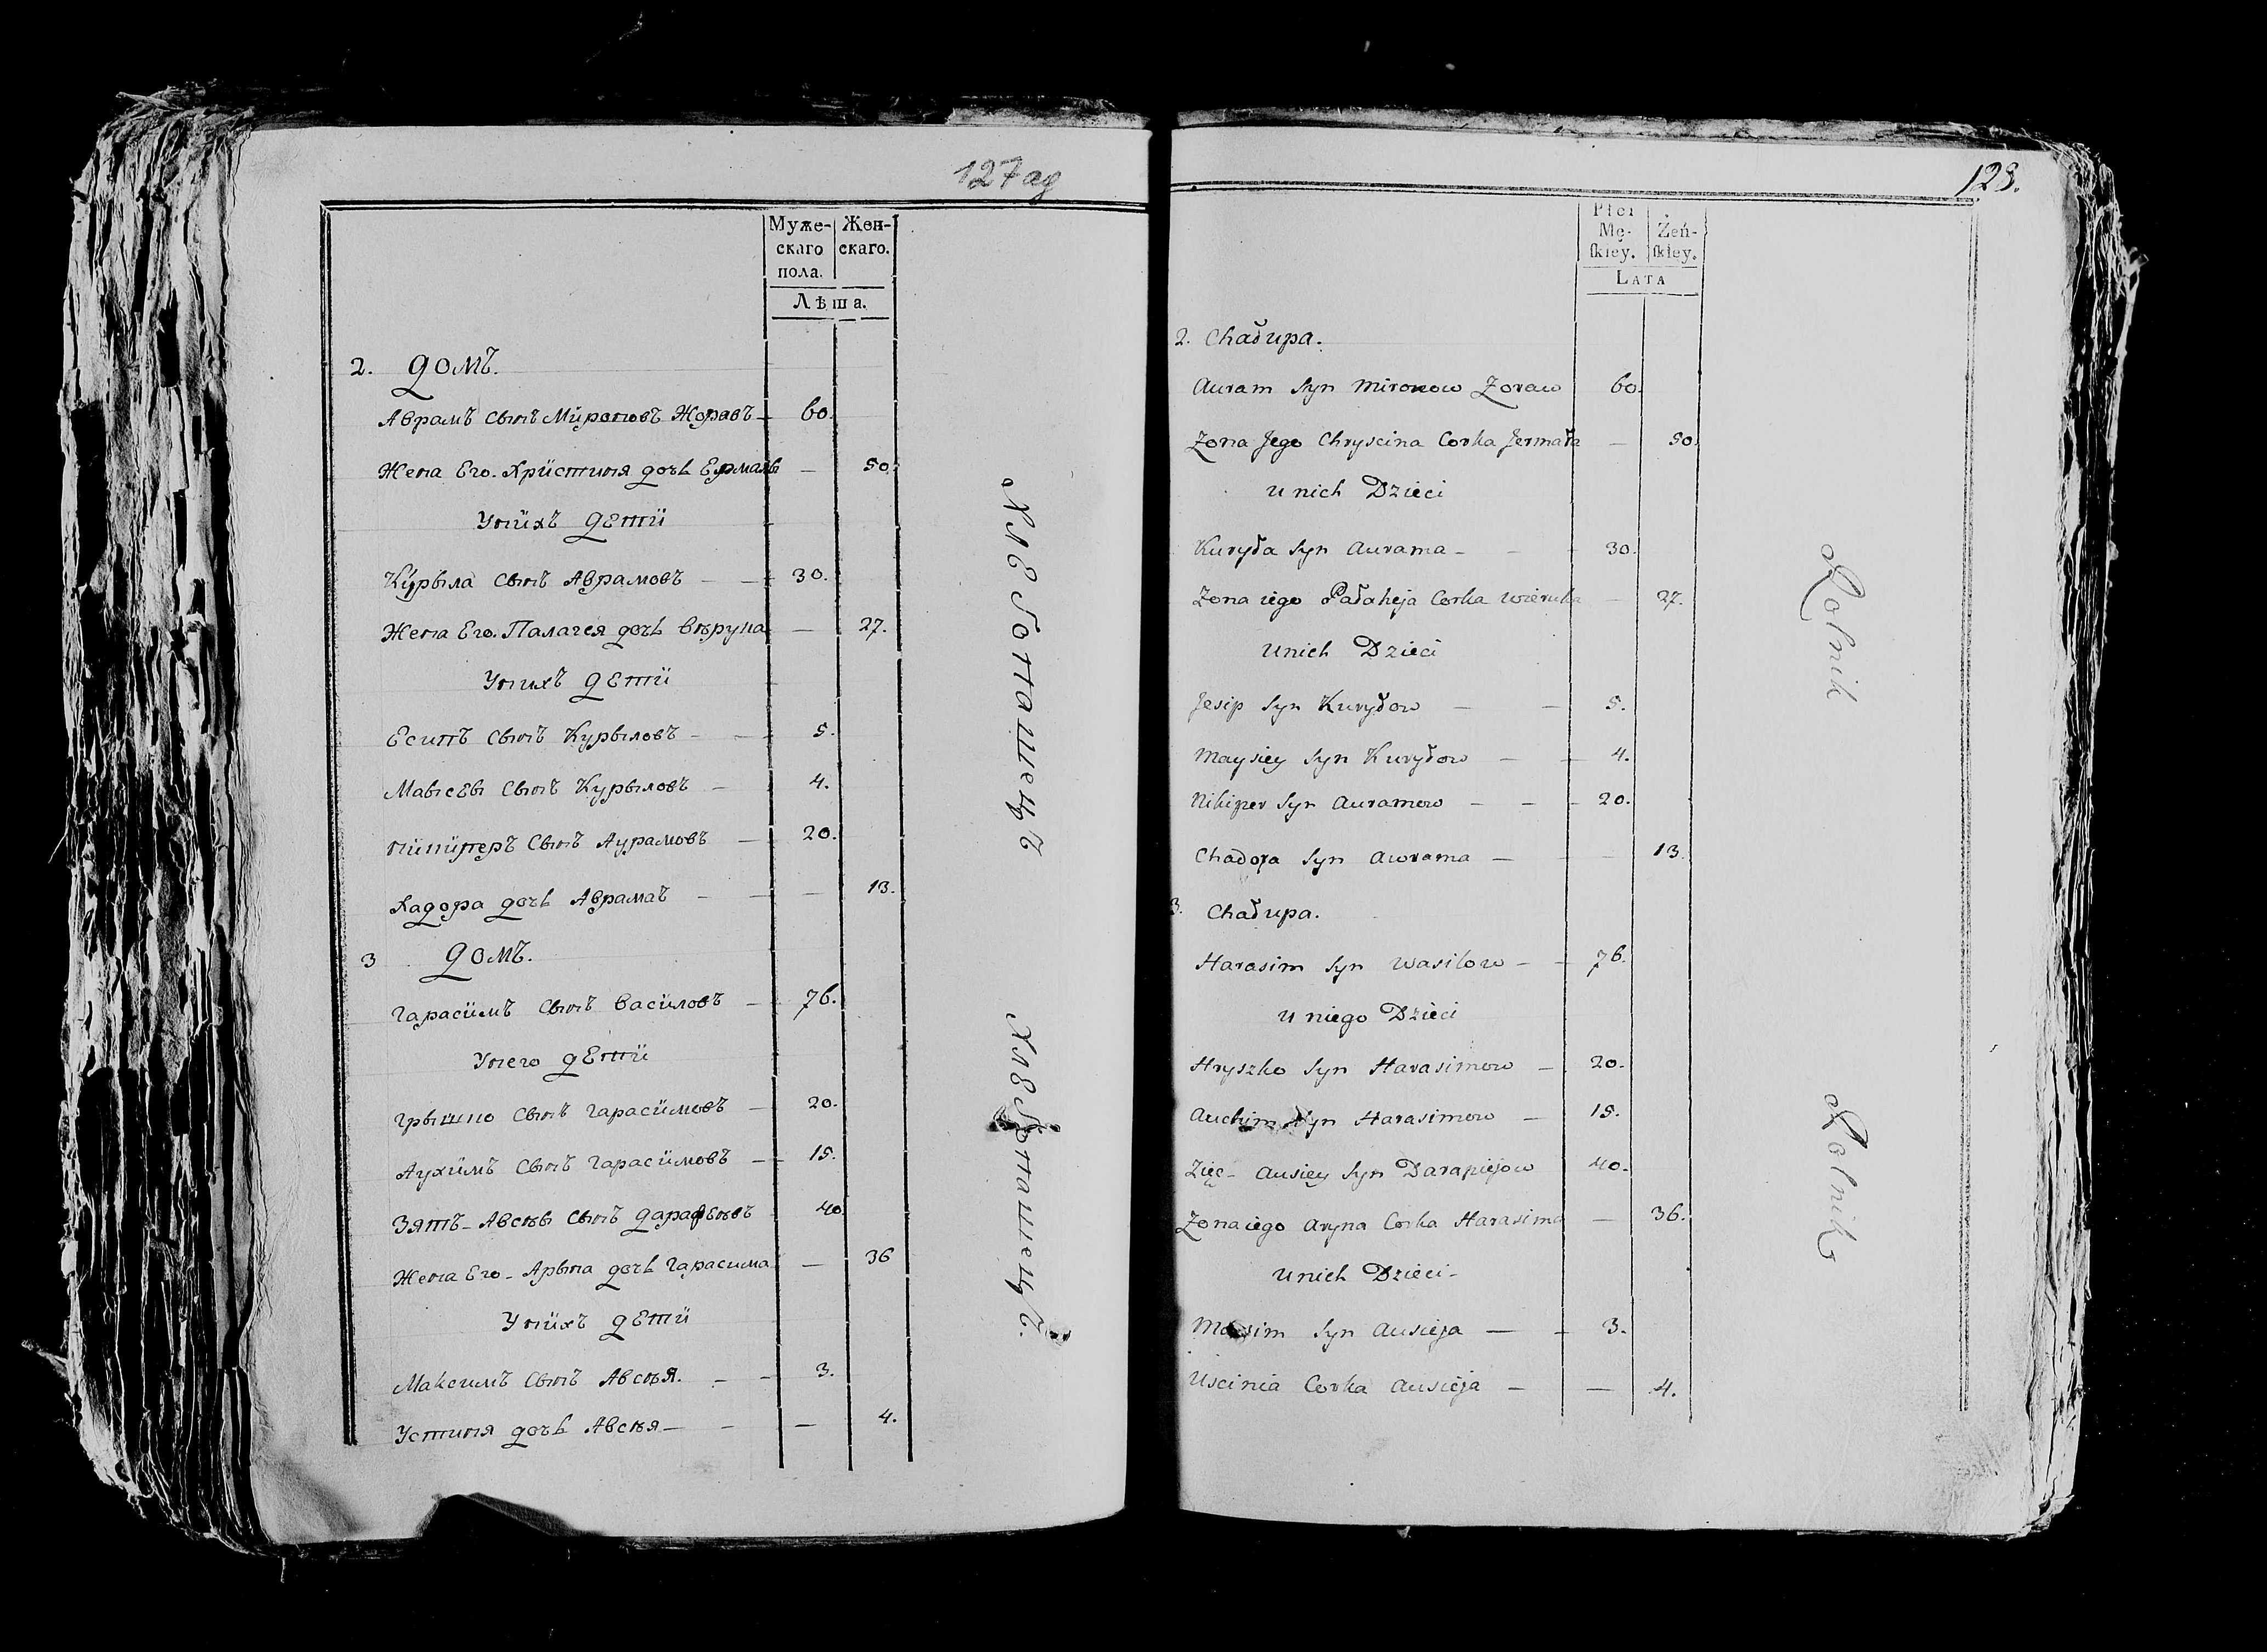 127 ад
Муже- Жен-
скаго скаго.
пола.
Лѣта.
2. Домъ.
Аврамъ Сынъ Миро­новъ Жоравъ — 60.
Жена Его. Христиня дочь Ермалы — 50.
У нихъ дети
Курыла сынъ Аврамовъ — — 30.
Жена Его. Палагея дочь — 27.
У нихъ дети
Есипъ сынъ Курыловъ — — 5.
Мавсей сынъ Курыловъ — 4.
Сынъ Аурамовъ — 20.
Хадора дочь Аврамаъ — — — 13.
3 Домъ.
Гарасимъ сынъ Василовъ — 76.
У него дети
Грышко сынъ Гарасимовъ — 20.
Аухимъ сынъ Гарасимовъ — 15.
Зять — Авсѣй сынъ 40
Жена Его — Арына дочь Гарасима — 36
У нихъ дети
Максимъ сынъ Авсѣя. — — 3.
Устиня дочь Авсѣя — — — 4.
Хлебопашецъ
Хлебопашецъ.
128.
Płci
Mę- Żeń-
ſkiey. ſkiey.
LATA
2. Chałupa.
Auram Syn Mironow Zoraw 60.
Zona Jego Chryscina Corka Jermała — 50.
u nich Dzieci
Kuryła Syn Aurama — — 30.
Zona iego Pałaheja Corka — 27.
u nich Dzieci
Jesip Syn Kuryłow — — 5.
Maysiey Syn Kuryłow — — 4.
Nikiper Syn Auramow — — — 20.
Chadora Syn Awrama — — — 13.
3. Chałupa.
Harasim Syn Wasilow — — 76.
u niego Dzieci
Hryszko Syn Harasimow — 20.
Auchim Syn Harasimow — 15.
Zięć — Ausiey Syn Darapiejow 40.
Zona iego Aryna Corka Harasima — 36.
u nich Dzieci —
Maxim Syn Ausieja — — 3.
Uscinia Corka Ausieja — — 4.
Rolnik
Rolnik